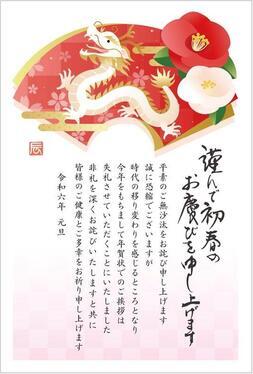 謹んで初春の
お慶びを申し上げます
平素のご無沙汰をお詫び申し上げます
誠に恐縮でございますが
時代の移り変わりを感じるところとなり
今年をもちまして年賀状でのご挨拶は
失札させていただくことにいたしました
非礼を深くお詫びいたしますと共に
皆様のご健康とご多幸をお祈り申し上げます
令和六年 元旦
辰